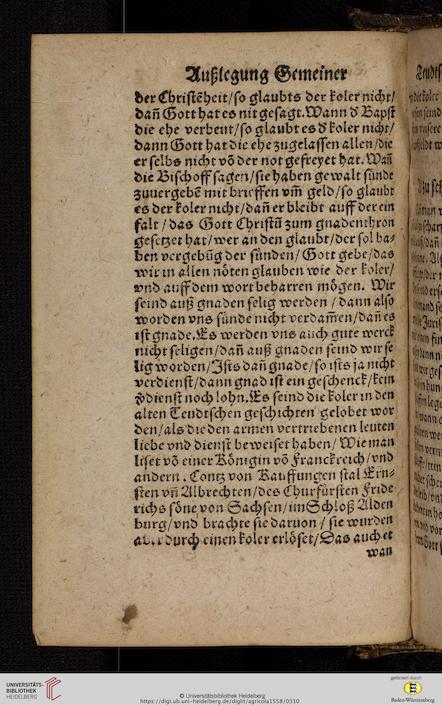 Außlegung Gemeiner
der Christēheit/so glaubts der koler nicht/
dañ Gott hat es nit gesagt. Wann d' Bapst
die ehe verbeut/so glaubt es d' koler nicht/
dann Gott hat die ehe zugelassen allen/die
er selbs nicht vō der not gefreyet hat. Wañ
die Bischoff sagen/sie haben gewalt sünde
zuuergebē mit brieffen vm̄ geld/so glaubt
es der koler nicht/dañ er bleibt auff der ein
falt/das Gott Christū zum gnadenthron
gesetzet hat/wer an den glaubt/der sol ha
ben vergebūg der sünden/Gott gebe/das
wir in allen nöten glauben wie der koler/
vnd auff dem wort beharren mögen. Wir
seind auß gnaden selig werden/dann also
worden vns sünde nicht verdam̄en/dañ es
ist gnade. Es werden vns auch gute werck
nicht seligen/dañ auß gnaden seind wir se
lig worden/Ists dañ gnade/so ists ja nicht
verdienst/dann gnad ist ein geschenck/kein
v̄dienst noch lohn. Es seind die koler in den
alten Teudtschen geschichten gelobet wor
den/als die den armen vertriebenen leuten
liebe vnd dienst beweiset haben/Wie man
liset vō einer Königin vō Franckreich/vnd
andern. Contz von Kauffungen stal Ern-
sten vñ Albrechten/des Churfürsten Fride
richs söne von Sachsen/im Schloß Alden
burg/vnd brachte sie daruon/sie wurden
aber durch einen koler erlöset/Das auch et
wan
UNIVERSITÄTS-
BIBLIOTHEK
HEIDELBERG
© Universitätsbibliothek Heidelberg
https://digi.ub.uni-heidelberg.de/diglit/agricola1558/0310
gefördert durch
Baden-Württemberg